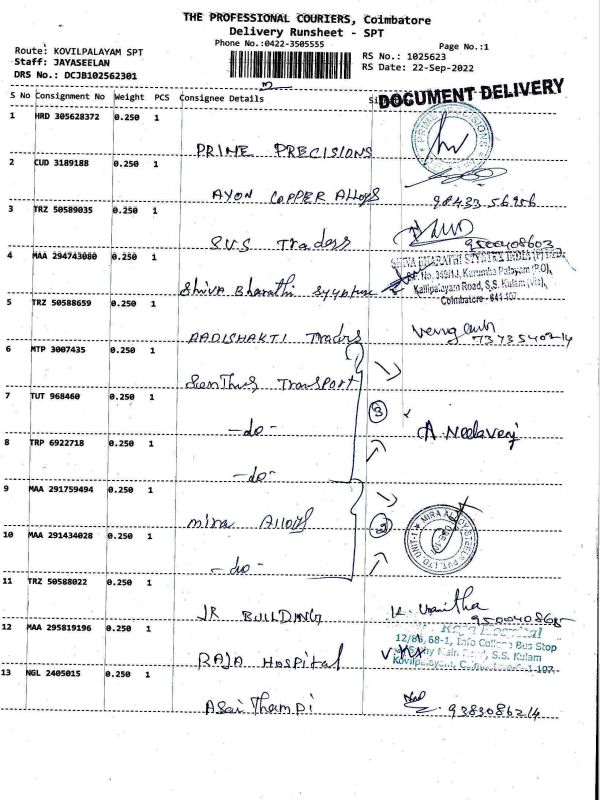 THE PROFESSIONAL COURIERS, Coimbatore
Delivery Runsheet - SPT
Phone No.:0422-3505555
Page No.:1
Route: KOVILPALAYAM SPT
Staff: JAYASEELAN
DRS No.: DCJB102562301
RS No.: 1025623
RS Date: 22-Sep-2022
DOCUMENT DELIVERY
S No Consignment No Weight PCS Consignee Details
1 HRD 305628372 0.250 1
PRIME PRECISIONS
2 CUD 3189188 0.250 1
AYON COPPER Alloys 98433 56956
3 TRZ 50589035 0.250 1
SVS Traders 9500408603
4 MAA 294743080 0.250 1
SHIVA BHARATHI INDIA (P)
Kurumba Palayam (P.O),
Kalipalayam Road, S.S. Kulam (Via),
Coimbatore - 641 107.
Shiva Bharathi
5 TRZ 50588659 0.250 1
AADISHAKTI Traders 7373540214
6 MTP 3007435 0.250 1
Transport
7 TUT 968460 0.250 1
3
-do- A. Neelaveni
8 TRP 6922718 0.250 1
-do-
9 MAA 291759494 0.250 1
mira Alloys 2
MIRA ALLOY STEELS PVT. LTD UNIT-1
10 MAA 291434028 0.250 1
-do-
11 TRZ 50588022 0.250 1
JR BUILDING K. Vanitha
12 MAA 295819196 0.250 1
12/86, 68-1, Info College Bus Stop
Main Road, S.S. Kulam
RAJA Hospital
13 NGL 2405015 0.250 1
Asai Thampi 9383086214